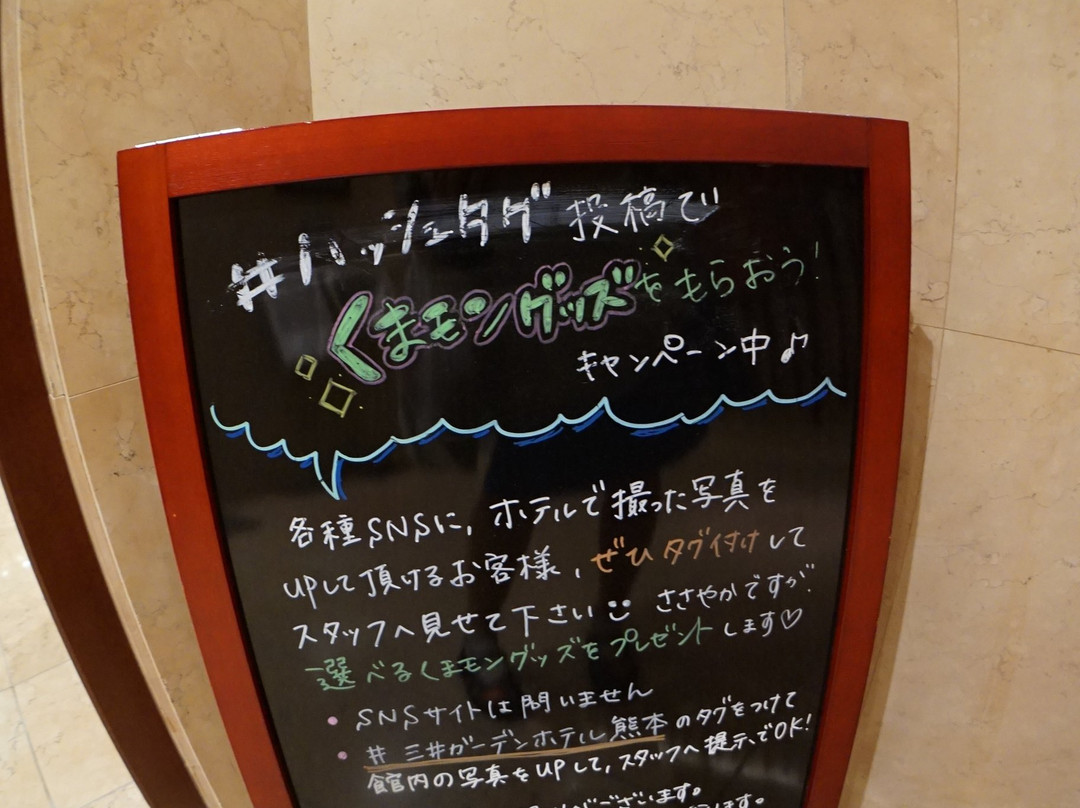 #ハッシュタグ 投稿で
くまモングッズをもらおう!
キャンペーン中♪
各種SNSに,ホテルで撮った写真を
UPして頂けるお客様,ぜひタグ付けして
スタッフへ見せて下さい ささやかですが、
選べるくまモングッズをプレゼントします♡
・SNSサイトは問いません
・#三井ガーデンホテル熊本のタグをつけて
館内の写真をUPして,スタッフへ提示でOK!
ございます。
ます。